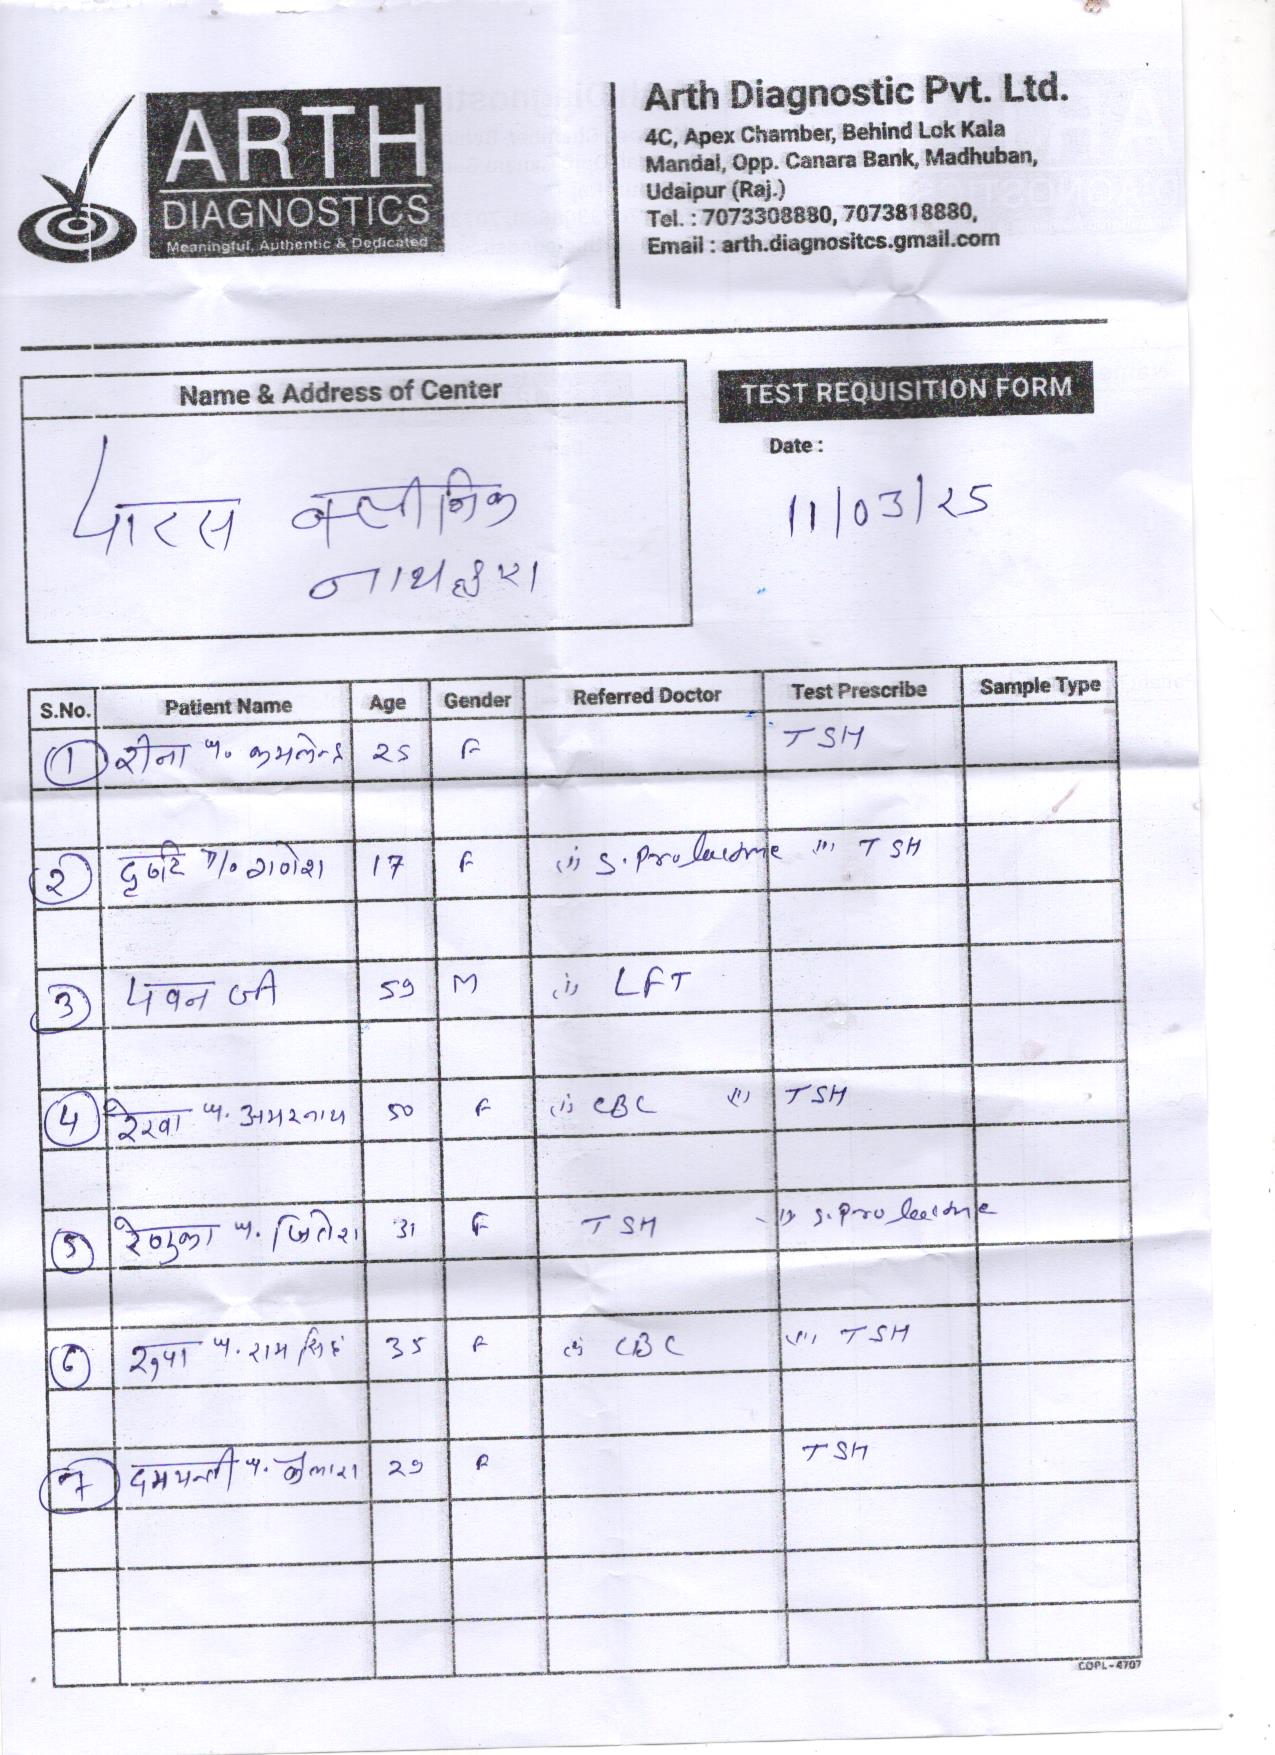 ARTH
DIAGNOSTICS
Meaningful, Authentic & Dedicated
Arth Diagnostic Pvt. Ltd.
4C, Apex Chamber, Behind Lok Kala
Mandal, Opp. Canara Bank, Madhuban,
Udaipur (Raj.)
Tel. : 7073308880, 7073818880,
Email : arth.diagnositcs.gmail.com
Name & Address of Center
पारस क्लीनिक
नाथद्वारा
TEST REQUISITION FORM
Date :
11/03/25
S.No. Patient Name Age Gender Referred Doctor Test Prescribe Sample Type
1 रीना W/o कमलेन्द्र 25 F TSH
2 17 F (i) S. Prolactine (ii) TSH
3 पवन जी 59 M (i) LFT
4 रेखा W/o अमरनाथ 50 F (i) CBC (ii) TSH
5 रेणुका W/o जितेश 31 F TSH (ii) S. Prolactine
6 W/o राम सिंह 35 F (i) CBC (ii) TSH
7 दमयन्ती W/o कैलाश 29 F TSH
COPL-4707